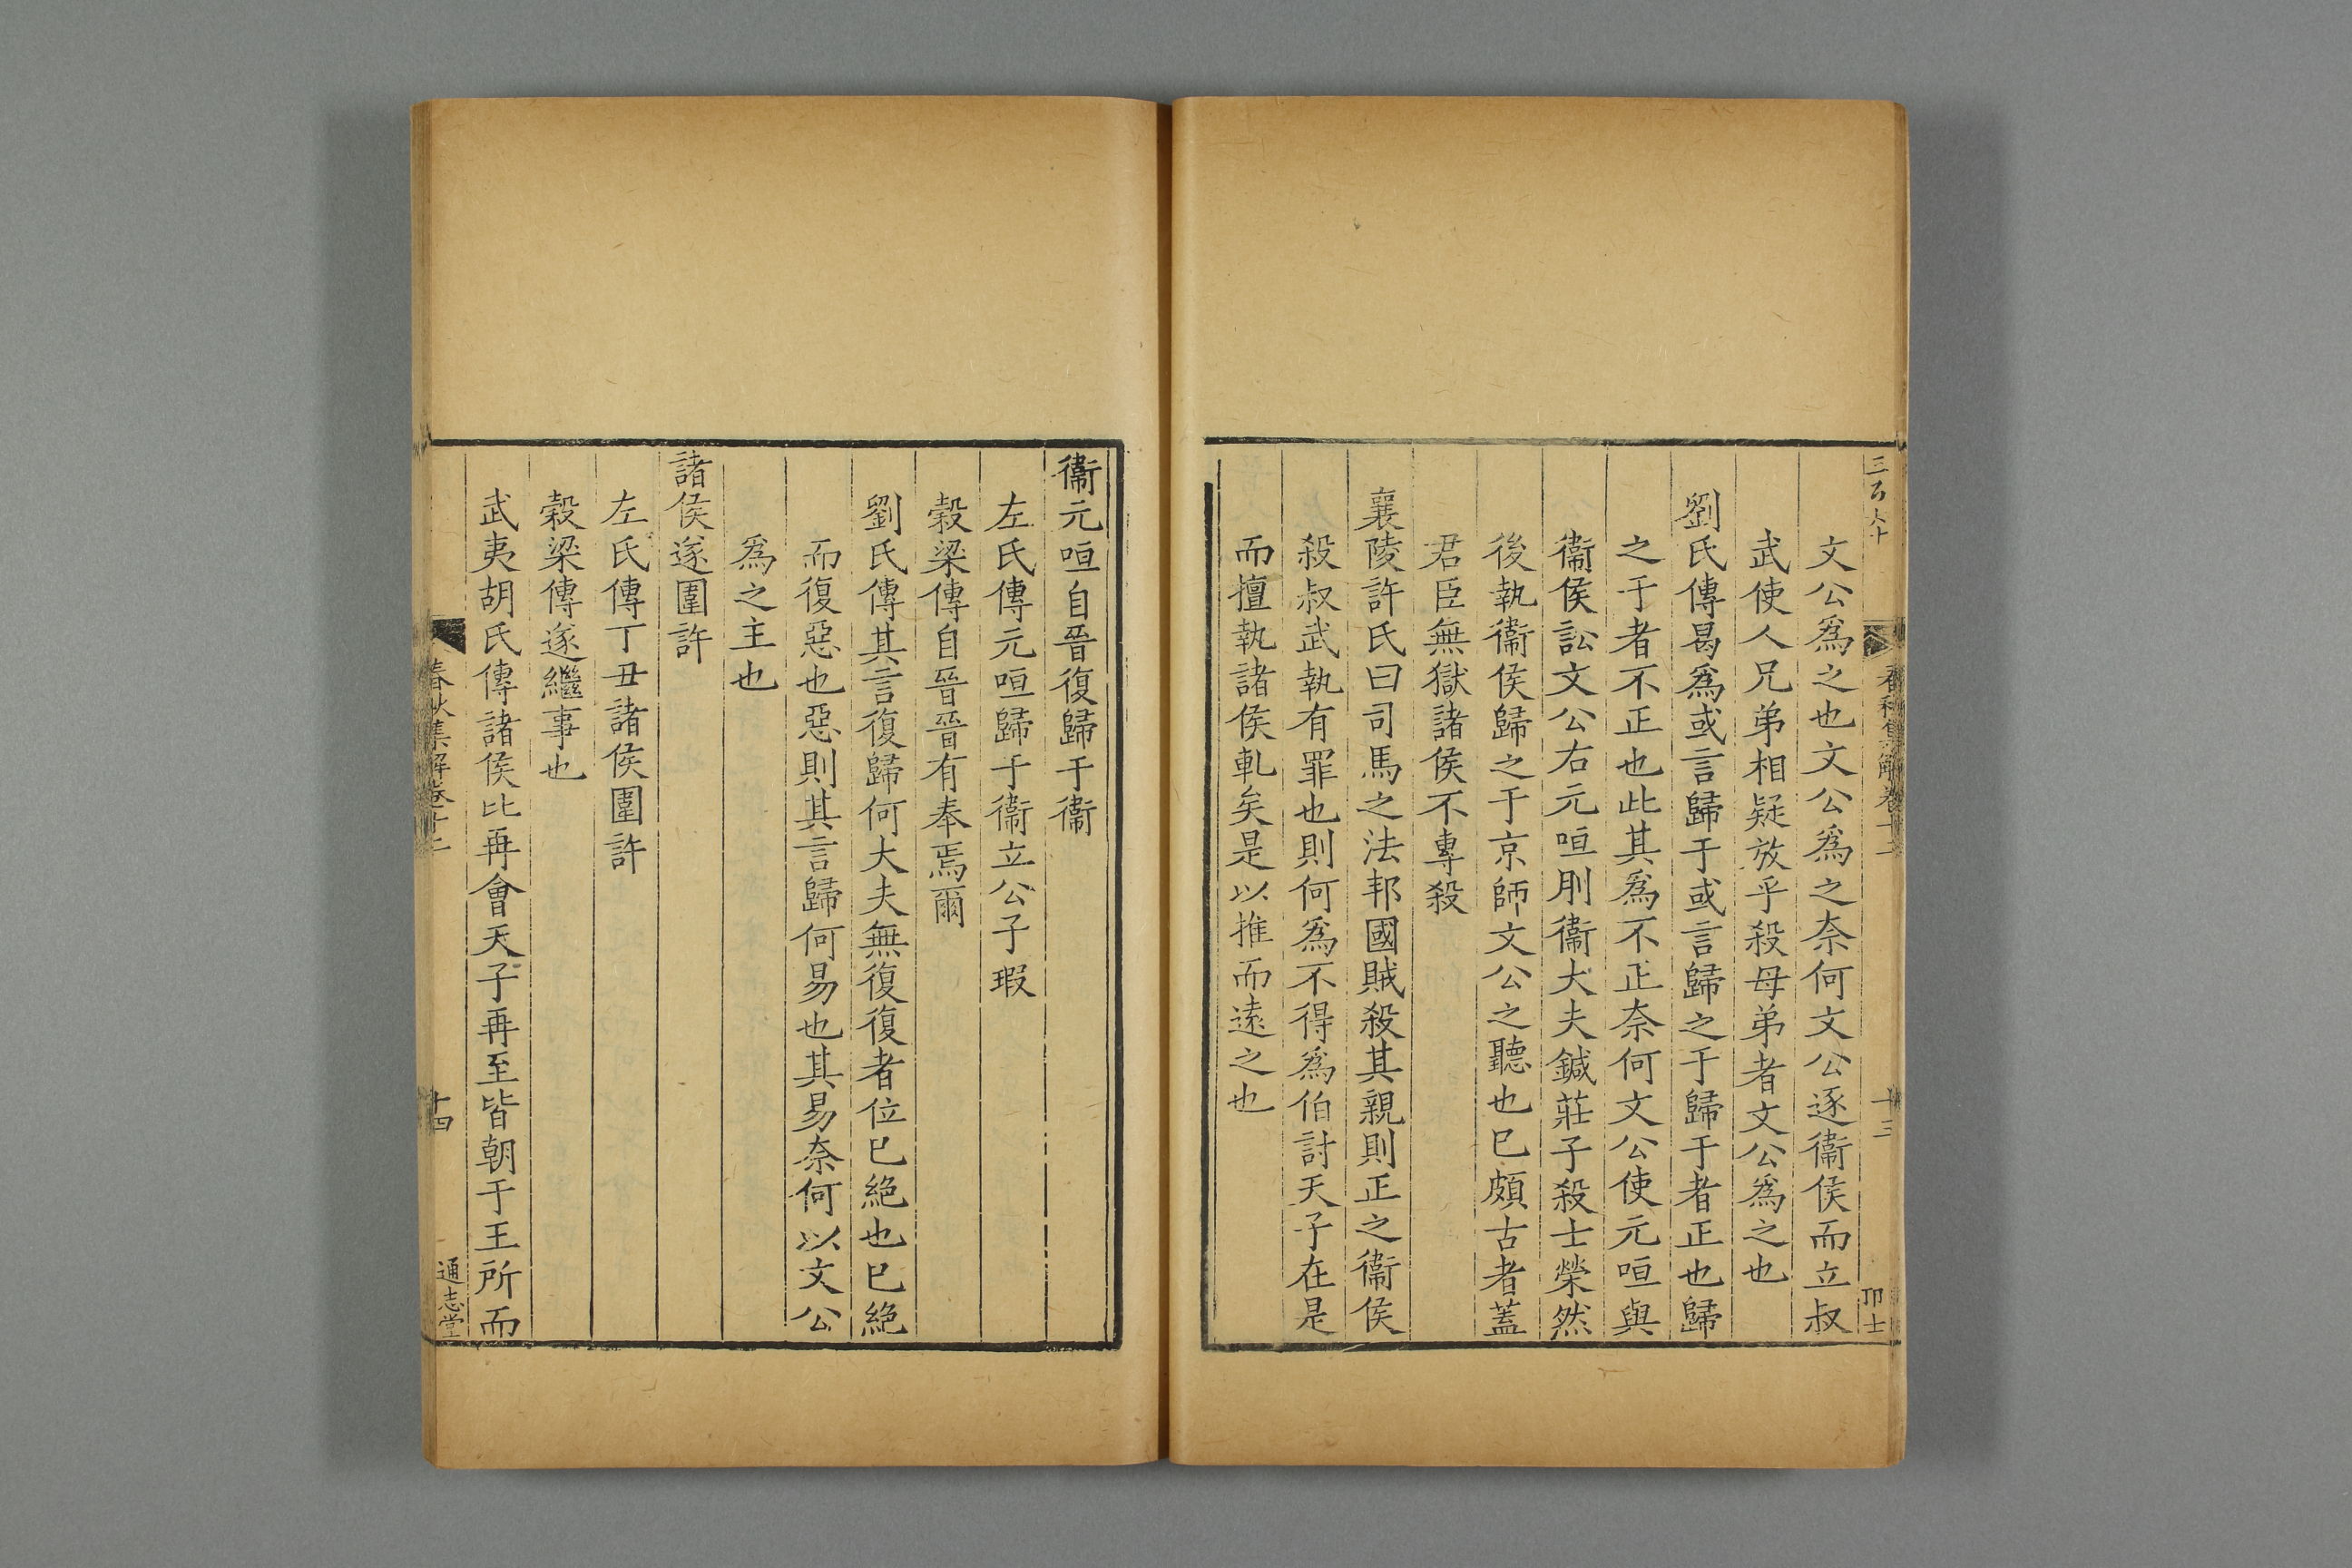 春秋集解卷十二
十三
文公爲之也文公爲之奈何文公逐衞侯而立叔
武使人兄弟相疑放乎殺母弟者文公爲之也
劉氏傳曷爲或言歸于或言歸之于歸于者正也歸
之于者不正也此其爲不正奈何文公使元咺與
衞侯訟文公右元咺刖衞大夫鍼莊子殺士榮然
後執衞侯歸之于京師文公之聽也已頗古者蓋
君臣無獄諸侯不專殺
襄陵許氏曰司馬之法邦國賊殺其親則正之衞侯
殺叔武執有罪也則何爲不得爲伯討天子在是
而擅執諸侯軋矣是以推而遠之也
衞元咺自晉復歸于衞
左氏傳元咺歸于衞立公子瑕
穀梁傳自晉晉有奉焉爾
劉氏傳其言復歸何大夫無復復者位已絶也已絶
而復惡也惡則其言歸何易也其易奈何以文公
爲之主也
諸侯遂圍許
左氏傳丁丑諸侯圍許
穀梁傳遂繼事也
武夷胡氏傳諸侯比再會天子再至皆朝于王所而
春秋集解卷十二
十四
通志堂